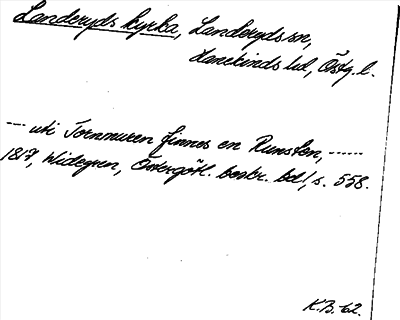 Landeryds kyrka, Landeryds sn,
Hanekinds hd, Östg. l.
--- uti Tornmuren finnes en Runsten, -----
1817, Widegren, Östergötl. beskr. bd 1, s. 558.
K.B. 62.